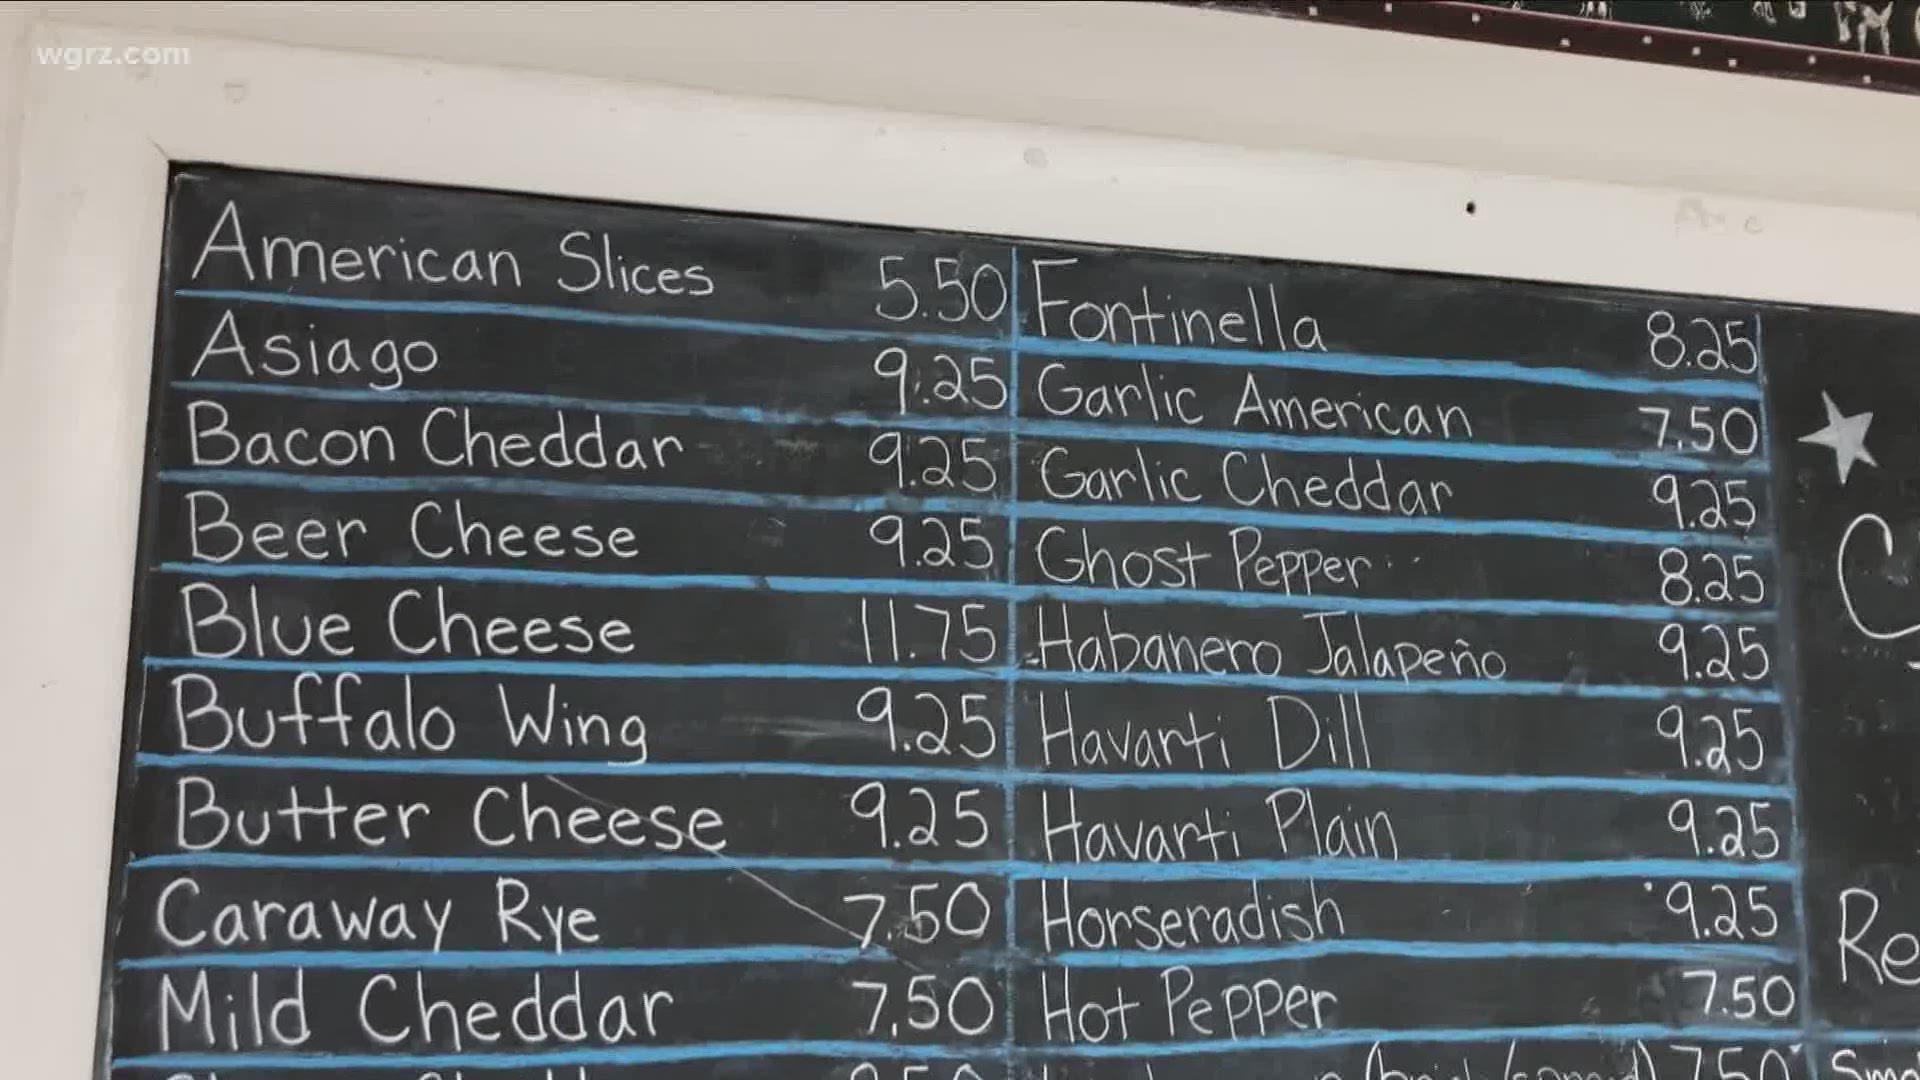 wgrz.com
American Slices 5.50
Asiago 9.25
Bacon Cheddar 9.25
Beer Cheese 9.25
Blue Cheese 11.75
Buffalo Wing 9.25
Butter Cheese 9.25
Caraway Rye 7.50
Mild Cheddar 7.50
Fontinella 8.25
Garlic American 7.50
Garlic Cheddar 9.25
Ghost Pepper 8.25
Habanero Jalapeño 9.25
Havarti Dill 9.25
Havarti Plain 9.25
Horseradish 9.25
Hot Pepper 7.50
7.50
Re